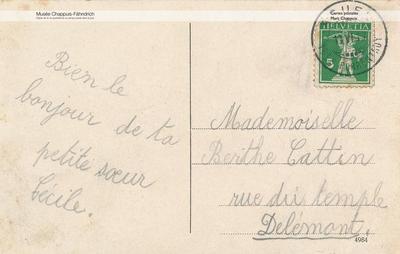 Musée Chappuis-Fähndrich
Cartes postales
Marc Chappuis
HELVETIA
5
Bien le
bonjour de ta
petite sœur
Cécile.
Mademoiselle
Berthe Cattin
rue du temple
Delémont.
4984